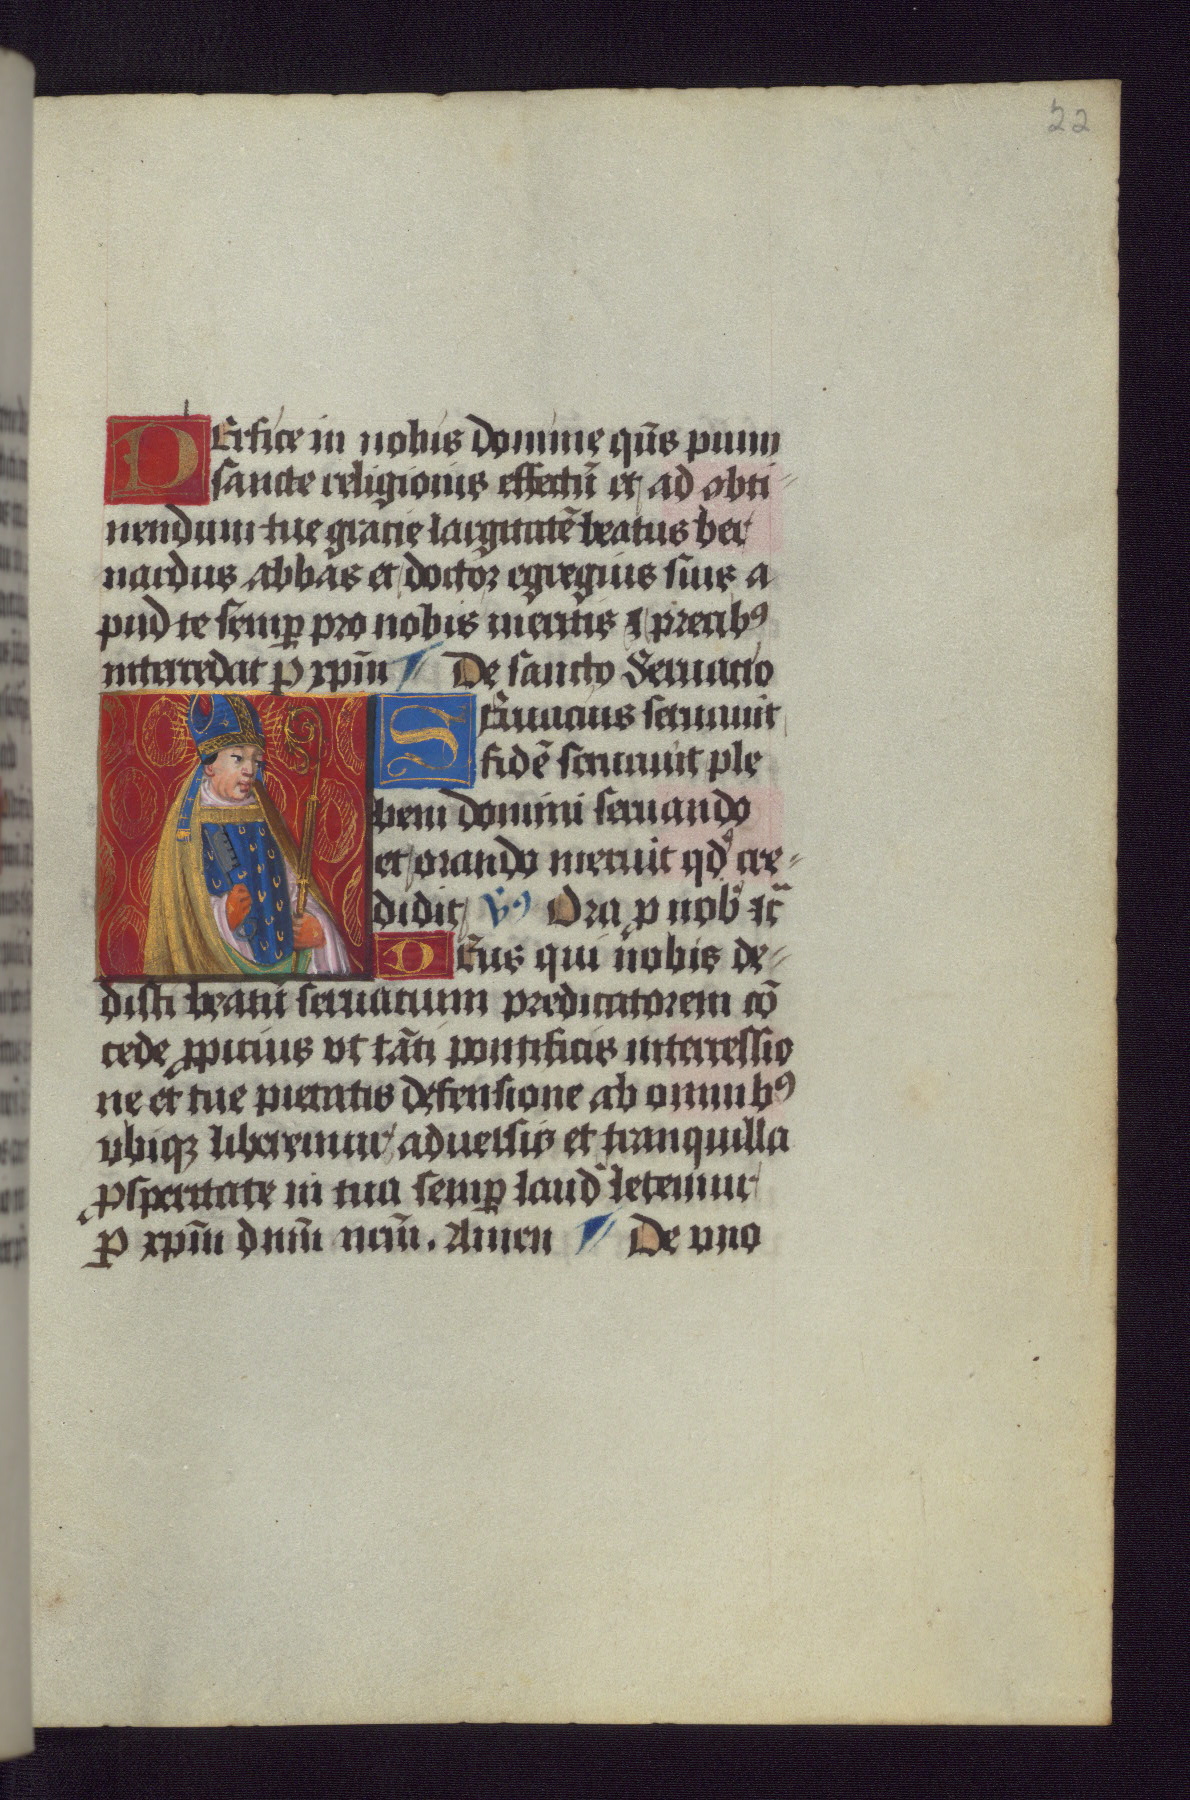 22
PErfice in nobis domine qūs pium
sancte religionis effectū et ad obti-
nendum tue gracie largitatē beatus ber
nardus abbas et doctor egregius suis a
pud te semꝑ pro nobis meritis ⁊ precibꝰ
intercedat ꝑ xpīm De sancto Seruacio
SEruacius seruauit
fidē seruauit ple
bem domini seruando
et orando meruit qd cre-
didit Vꝰ Ora ꝓ nob ⁊c̄
DEus qui nobis de-
disti beatū seruatium predicatorem cō
cede ꝓpicius vt tāti pontificis intercessio
ne et tue pietatis defensione ab omnibꝰ
vbiqꝫ liberemur aduersis et tranquilla
ꝓsperitate in tua semꝑ laud letemur
ꝑ xpīm dnm̄ nrm̄. Amen De uno